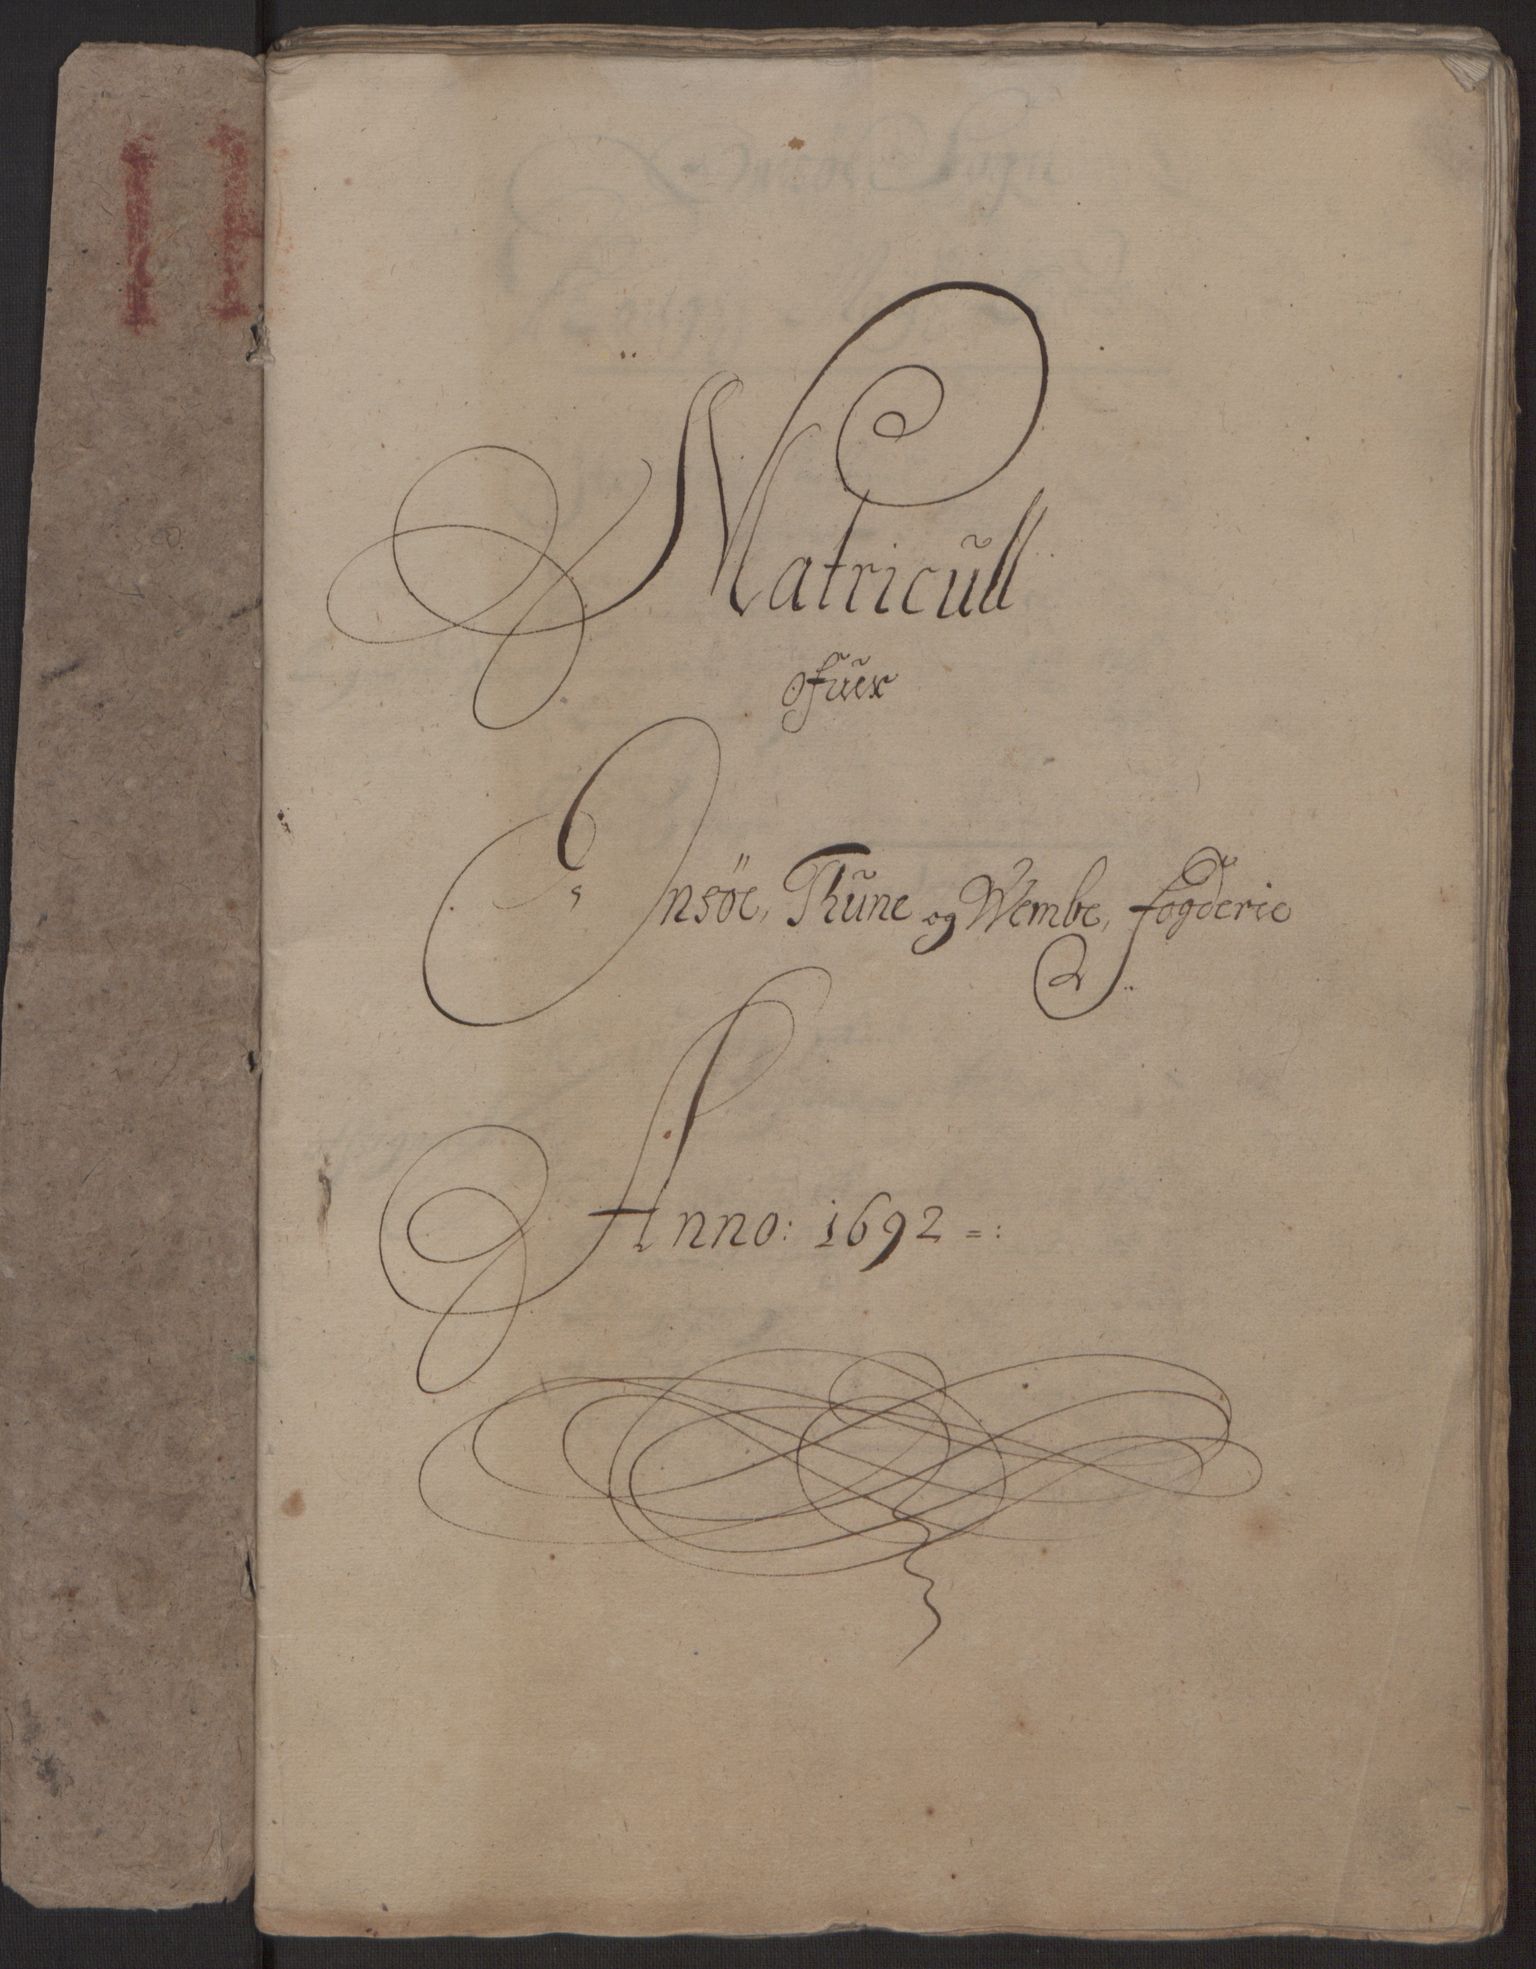 Matricull
ofuer
Onsöe, Thune og Wembe, fogderie
Anno: 1692 =: